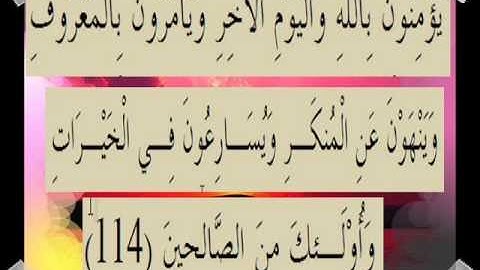 يُؤْمِنُونَ بِاللَّهِ وَالْيَوْمِ الْآَخِرِ وَيَأْمُرُونَ بِالْمَعْرُوفِ
وَيَنْهَوْنَ عَنِ الْمُنْكَـــرِ وَيُسَـــارِعُونَ فِـــي الْخَيْـــرَاتِ
وَأُولَـــئِكَ مِنَ الصَّالِحِينَ (114)